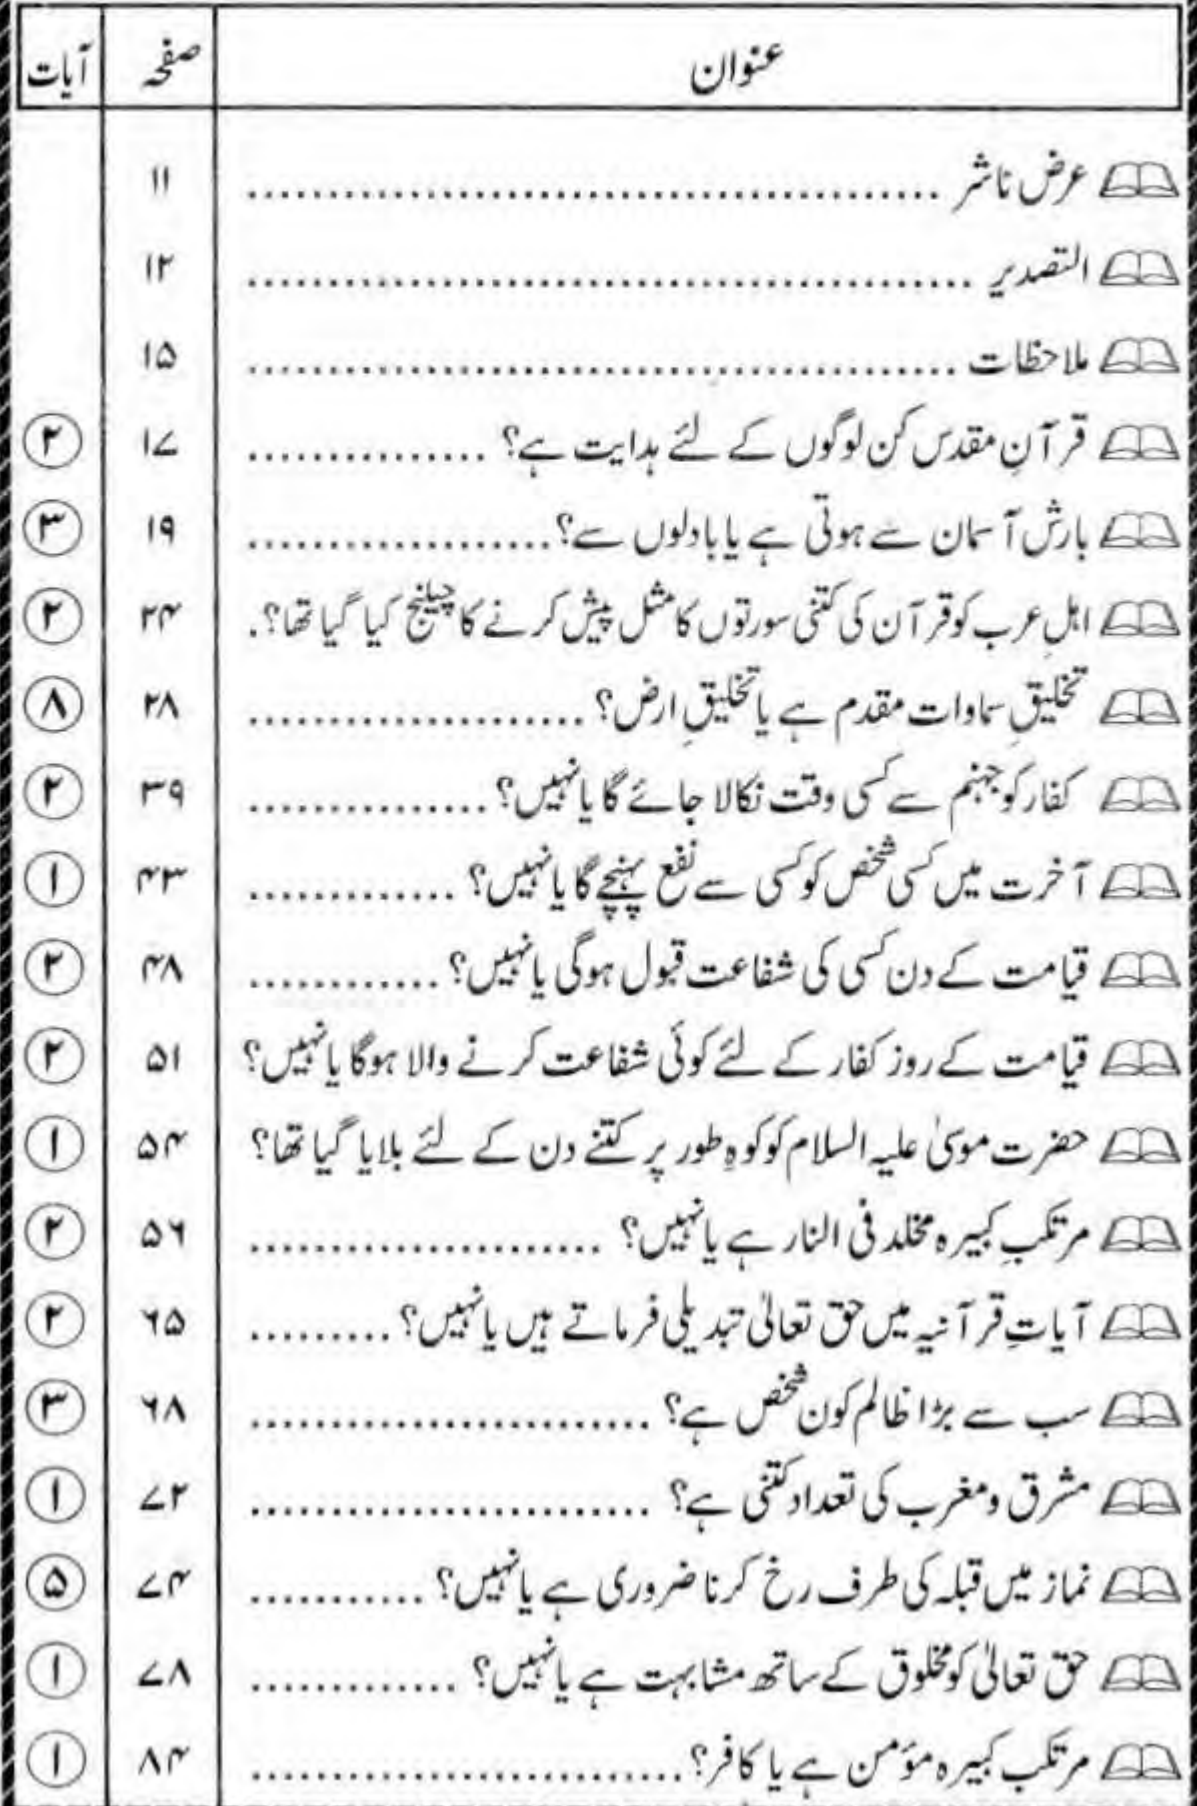 عنوان صفحہ آیات
عرض ناشر ........................................ ۱۱
التصدیر ........................................ ۱۲
ملاحظات ........................................ ۱۵
قرآنِ مقدس کن لوگوں کے لئے ہدایت ہے؟ ............... ۱۷ ۲
بارش آسمان سے ہوتی ہے یا بادلوں سے؟ ................... ۱۹ ۳
اہلِ عرب کو قرآن کی کتنی سورتوں کا مثل پیش کرنے کا چیلنج کیا گیا تھا؟. ۲۴ ۲
تخلیقِ سماوات مقدم ہے یا تخلیقِ ارض؟ ..................... ۲۸ ۸
کفار کو جہنم سے کسی وقت نکالا جائے گا یا نہیں؟ ............... ۳۹ ۲
آخرت میں کسی شخص کو کسی سے نفع پہنچے گا یا نہیں؟ ............. ۴۳ ۱
قیامت کے دن کسی کی شفاعت قبول ہوگی یا نہیں؟ ............ ۴۸ ۲
قیامت کے روز کفار کے لئے کوئی شفاعت کرنے والا ہوگا یا نہیں؟ ۵۱ ۲
حضرت موسیٰ علیہ السلام کو کوہِ طور پر کتنے دن کے لئے بلایا گیا تھا؟ ۵۴ ۱
مرتکبِ کبیرہ مخلد فی النار ہے یا نہیں؟ ...................... ۵۶ ۲
آیاتِ قرآنیہ میں حق تعالیٰ تبدیلی فرماتے ہیں یا نہیں؟ ......... ۶۵ ۲
سب سے بڑا ظالم کون شخص ہے؟ ......................... ۶۸ ۳
مشرق ومغرب کی تعداد کتنی ہے؟ ......................... ۷۲ ۱
نماز میں قبلہ کی طرف رخ کرنا ضروری ہے یا نہیں؟ ........... ۷۴ ۵
حق تعالیٰ کو مخلوق کے ساتھ مشابہت ہے یا نہیں؟ ............. ۷۸ ۱
مرتکب کبیرہ مؤمن ہے یا کافر؟ ........................... ۸۴ ۱